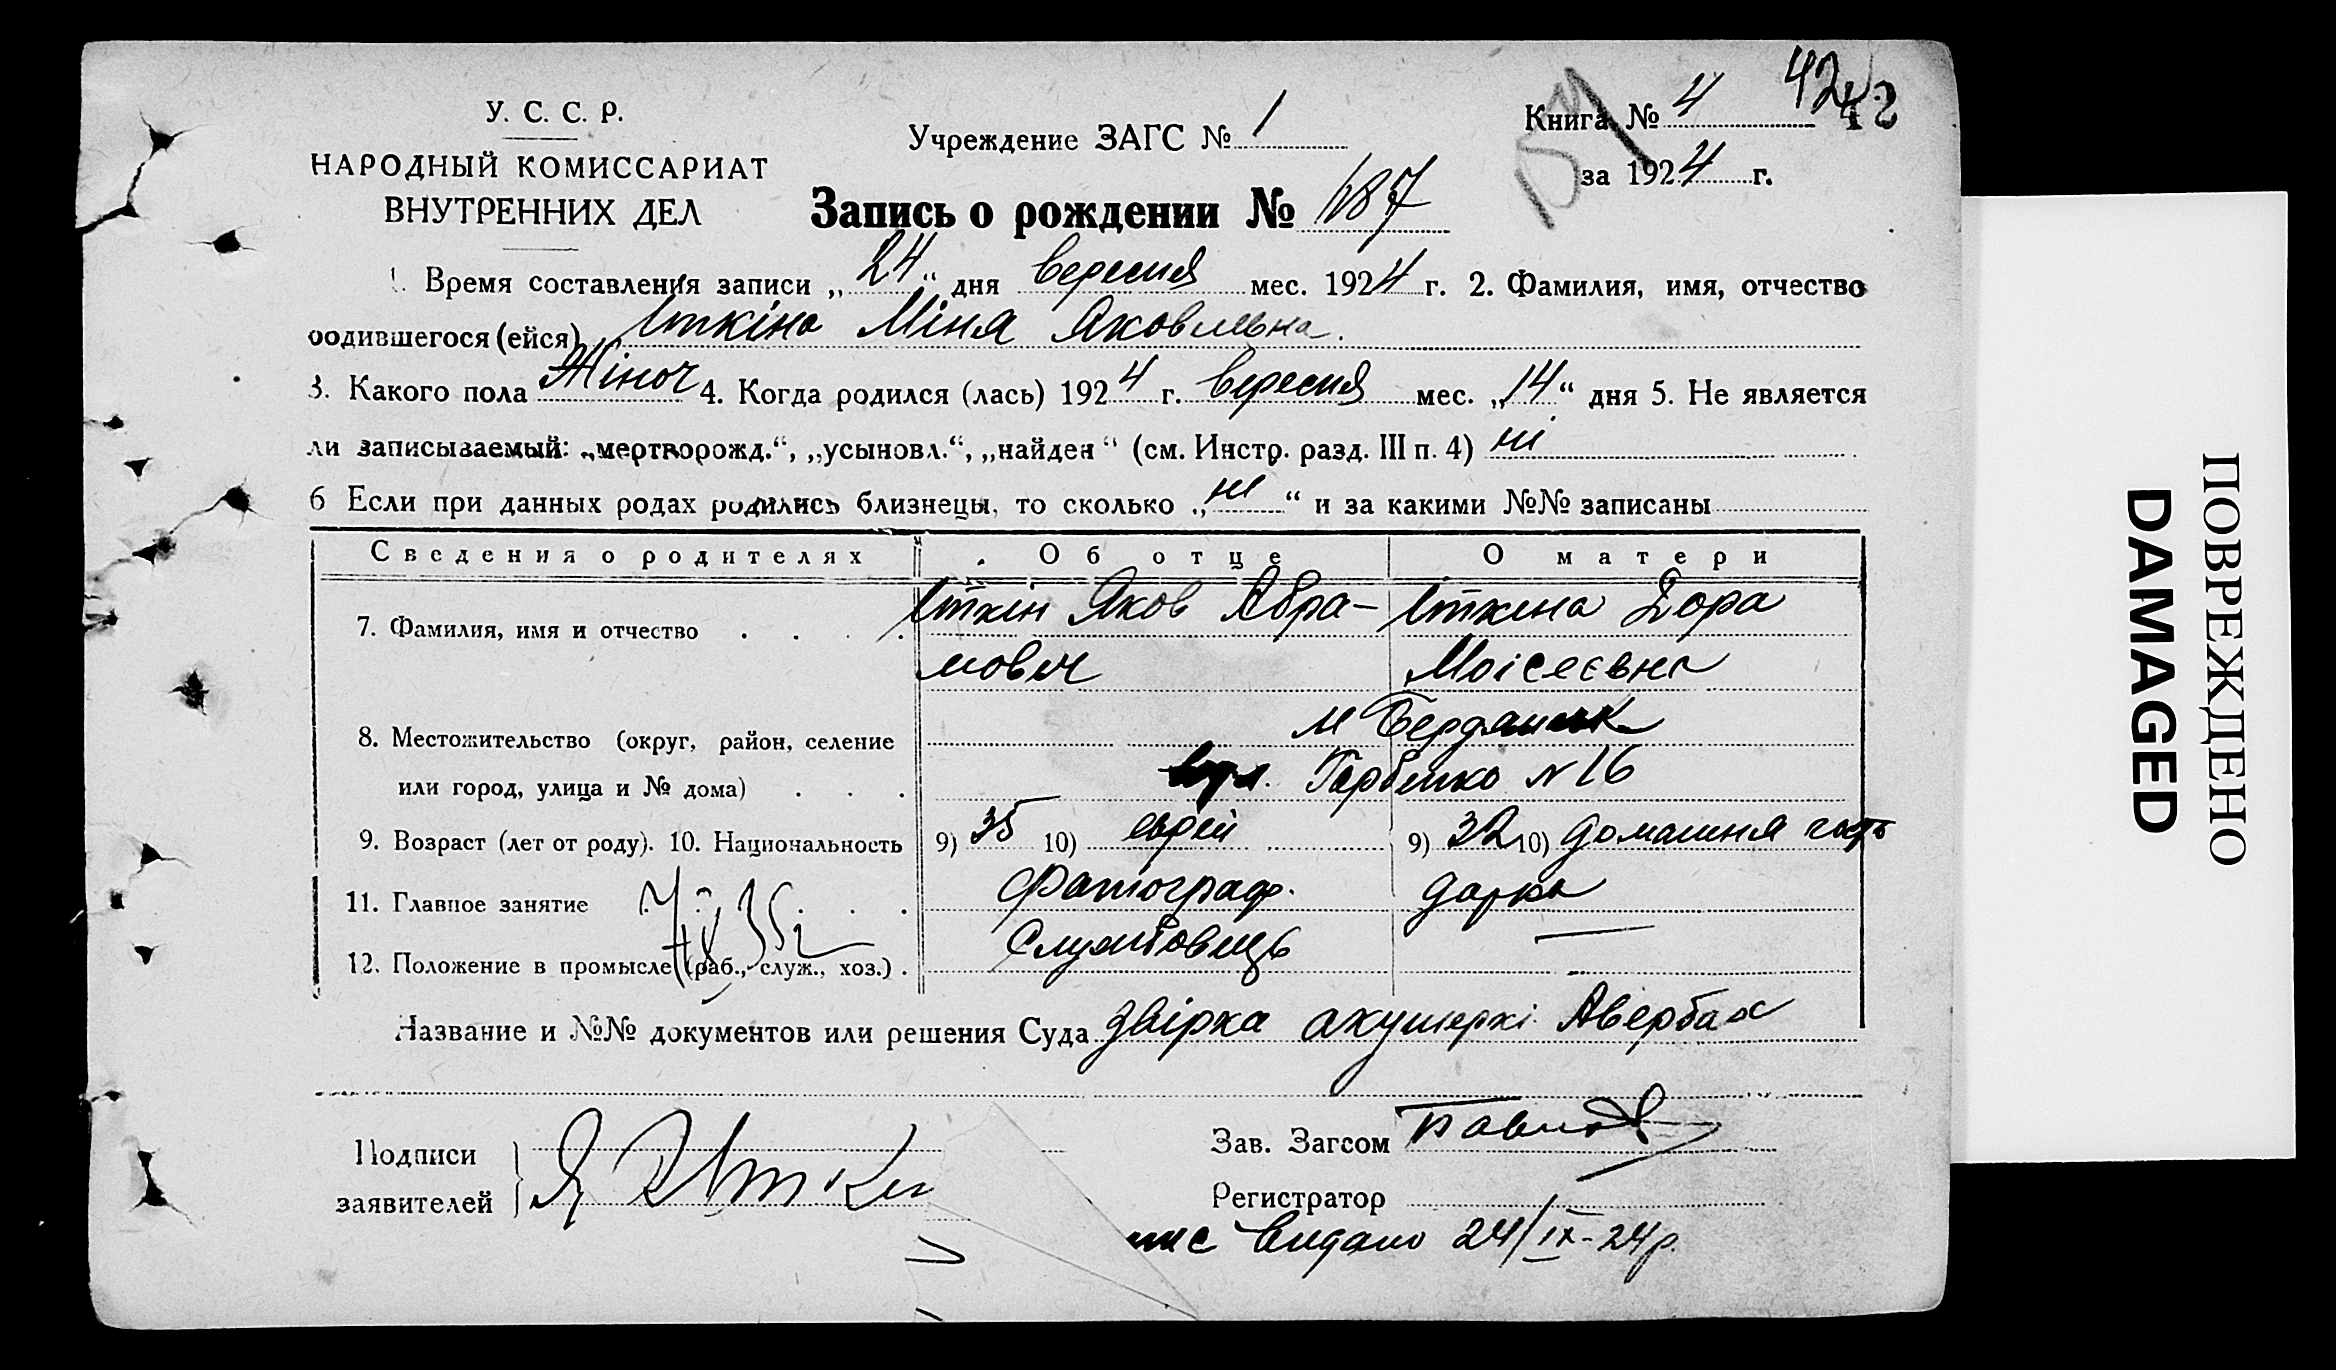 42
42
У. С. С. Р.
НАРОДНЫЙ КОМИССАРИАТ
ВНУТРЕННИХ ДЕЛ
Учреждение ЗАГС № 1
Книга № 4
за 1924 г.
Запись о рождении № 187
1. Время составления записи „24“ дня вересня мес. 1924 г. 2. Фамилия, имя, отчество
родившегося (ейся) Іткіна Міня Яковлевна.
3. Какого пола Жіноч 4. Когда родился (лась) 1924 г. вересня мес. „14“ дня 5. Не является
ли записываемый: „мертворожд.“, „усыновл.“, „найден“ (см. Инстр. разд. III п. 4) ні
6 Если при данных родах родились близнецы, то сколько „ні“ и за какими №№ записаны
Сведения о родителях Об отце О матери
7. Фамилия, имя и отчество Іткін Яков Абра- Іткина Дора
мович Моісеєвна
8. Местожительство (округ, район, селение м Бердянськ
или город, улица и № дома) вул. Горбенко N 16
9. Возраст (лет от роду). 10. Национальность 9) 35 10) еврей 9) 32 10) домашня госпо
11. Главное занятие Фотограф. дарка
12. Положение в промысле (раб., служ., хоз.) Службовець —
Название и №№ документов или решения Суда Звірка акушеркі Авербах
Подписи
заявителей
Зав. Загсом
Регистратор
видано 24/IX-24р.
ПОВРЕЖДЕНО
DAMAGED